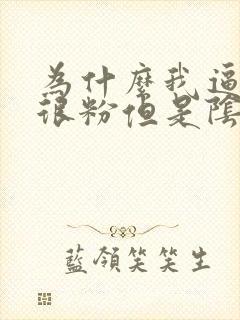 為什麼我逼
很粉但是陰
藍領笑笑生